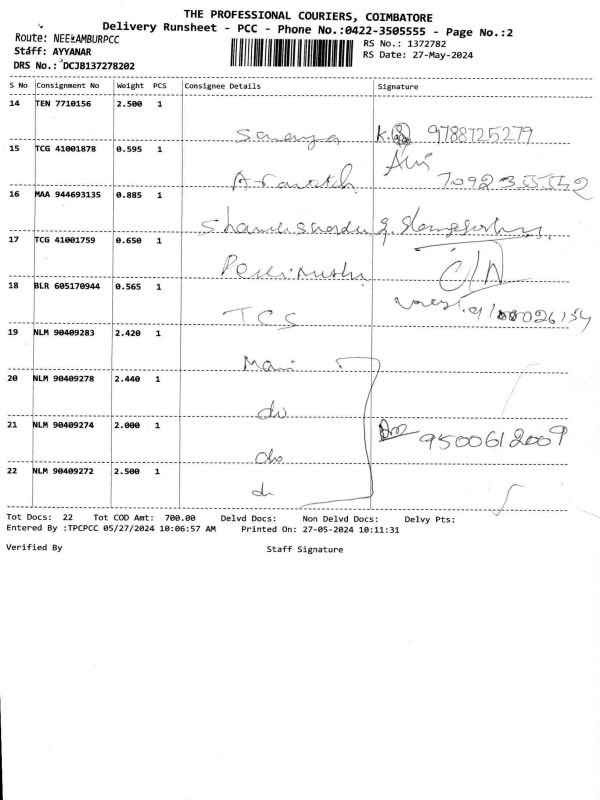 THE PROFESSIONAL COURIERS, COIMBATORE
Delivery Runsheet - PCC - Phone No.:0422-3505555 - Page No.:2
Route: NEELAMBURPCC
RS No.: 1372782
Staff: AYYANAR
RS Date: 27-May-2024
DRS No.: DCJB137278202
S No Consignment No Weight PCS Consignee Details Signature
14 TEN 7710156 2.500 1
Saranya K.S 9788725279
15 TCG 41001878 0.595 1
Aravinth
16 MAA 944693135 0.885 1
17 TCG 41001759 0.650 1
18 BLR 605170944 0.565 1
TCS
19 NLM 90409283 2.420 1
Mani
20 NLM 90409278 2.440 1
do
21 NLM 90409274 2.000 1
9500612009
do
22 NLM 90409272 2.500 1
Tot Docs: 22 Tot COD Amt: 700.00 Delvd Docs: Non Delvd Docs: Delvy Pts:
Entered By :TPCPCC 05/27/2024 10:06:57 AM Printed On: 27-05-2024 10:11:31
Verified By Staff Signature